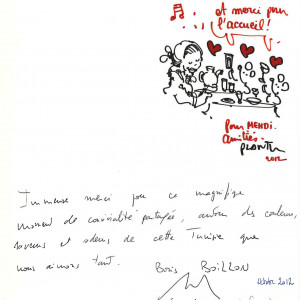 et merci pour
l'accueil!
Pour MEHDI.
Amitiés.
PLANTU
2012
Immense merci pour ce magnifique
moment de convivialité partagée, autour des couleurs,
saveurs et odeurs de cette Tunisie que
nous aimons tant. Boris BOILLON
2012